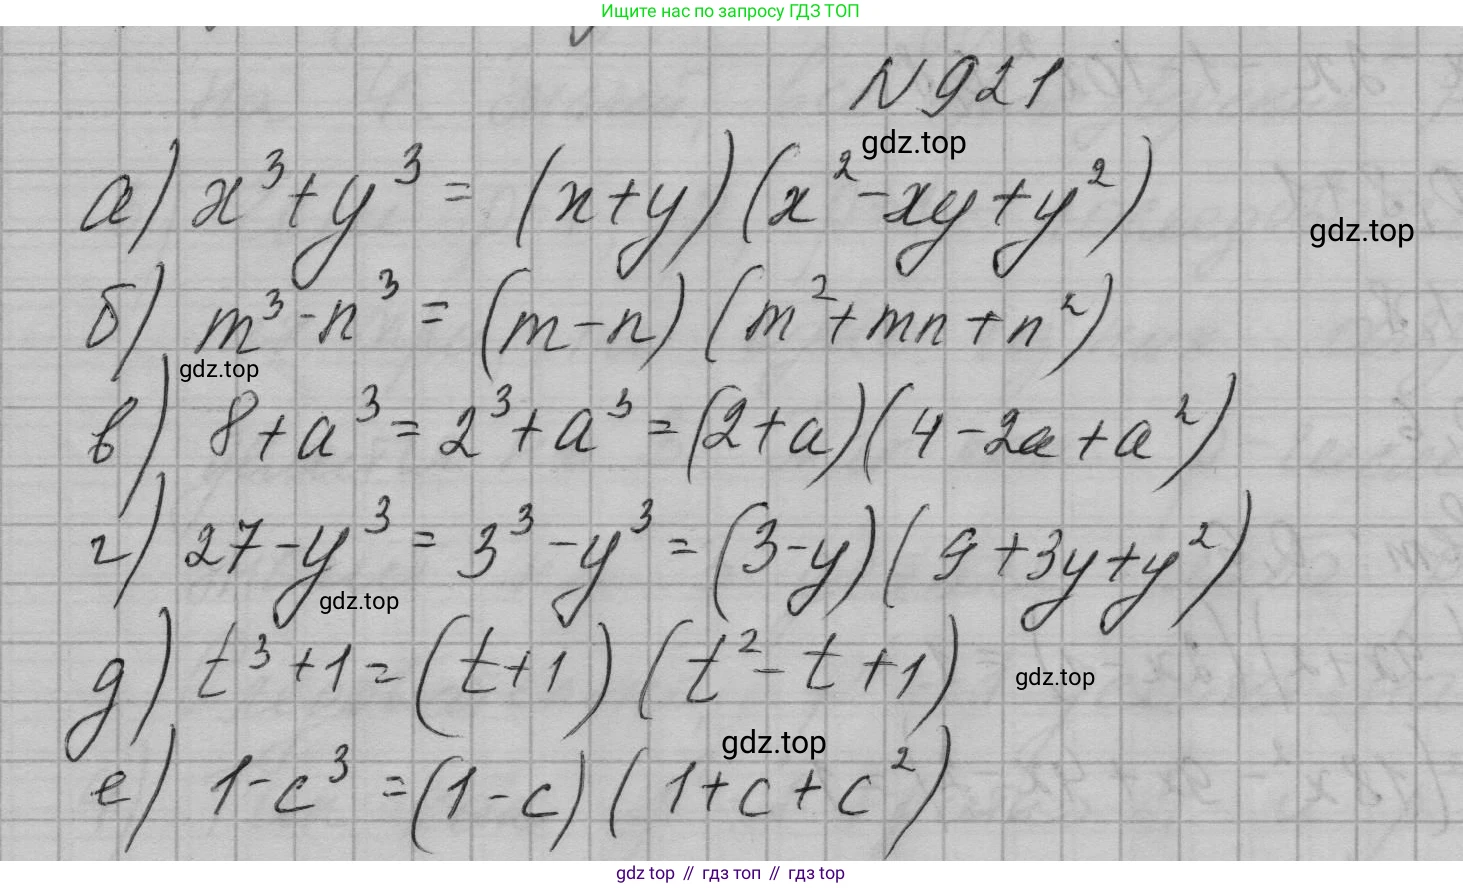 Ищите нас по запросу ГДЗ ТОП
N 921
gdz.top
а) x³ + y³ = (x + y) (x² - xy + y²)
gdz.top
б) m³ - n³ = (m - n) (m² + mn + n²)
gdz.top
в) 8 + a³ = 2³ + a³ = (2 + a) (4 - 2a + a²)
г) 27 - y³ = 3³ - y³ = (3 - y) (9 + 3y + y²)
gdz.top
д) t³ + 1 = (t + 1) (t² - t + 1)
gdz.top
gdz.top
е) 1 - c³ = (1 - c) (1 + c + c²)
gdz top // гдз топ // гдз top